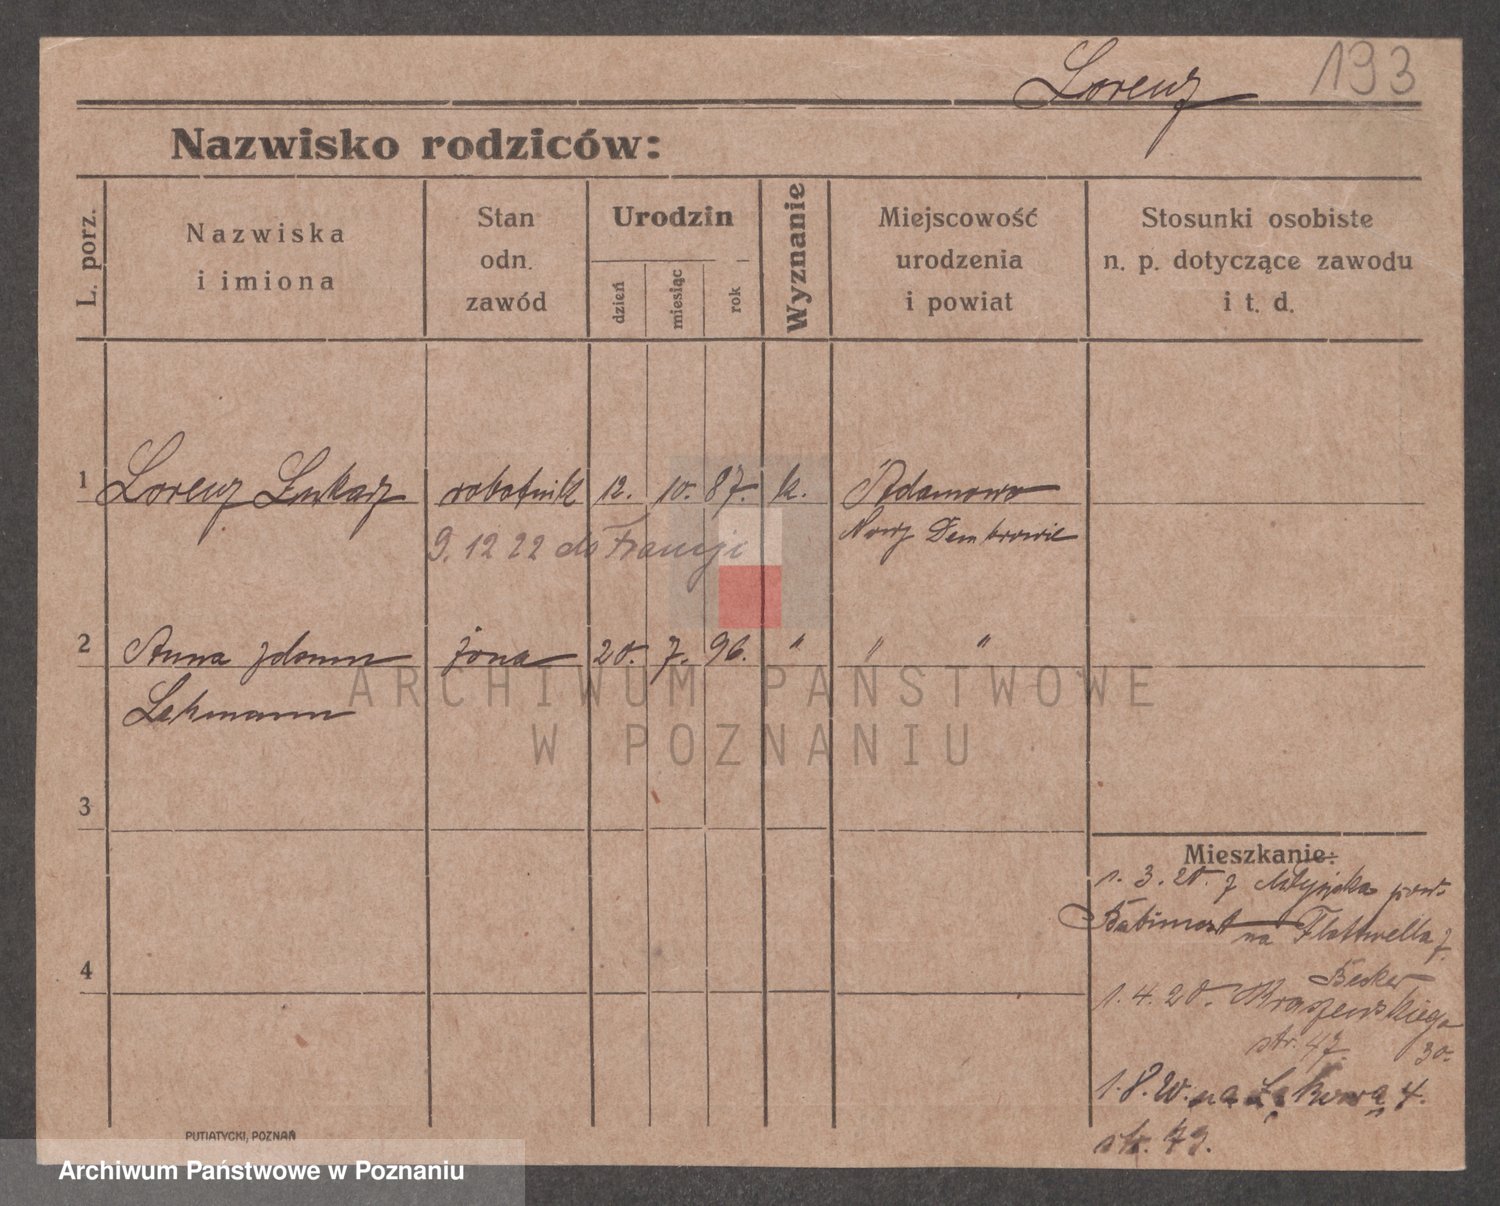 Lorenz 193
Nazwisko rodziców:
L. porz.
Nazwiska
i imiona
Stan
odn.
zawód
Urodzin
dzień
miesiąc
rok
Wyznanie
Miejscowość
urodzenia
i powiat
Stosunki osobiste
n. p. dotyczące zawodu
i t. d.
1 Lorenz Łukasz robotnik 12. 10. 87. k. Adamowo
9. 12 22 do Francji
2 Anna żona 20. 7. 96. " " "
Lehmann
3
4
Mieszkanie:
1. 3. 20. z pow.
Babimost na Flottwella 7.
Becker
1. 4. 20. Kraszewskiego
str. 47. 30.
1. 8. 20. na Łąkową 4.
str. 79.
PUTIATYCKI, POZNAŃ
ARCHIWUM PAŃSTWOWE
W POZNANIU
Archiwum Państwowe w Poznaniu